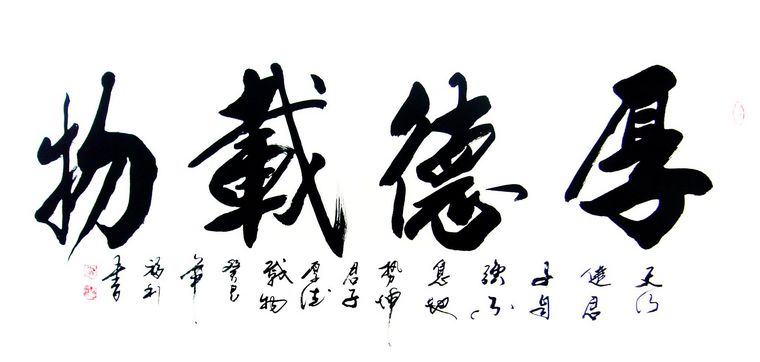 厚德載物
天行健君子自強不息地勢坤君子厚德載物癸巳福利書